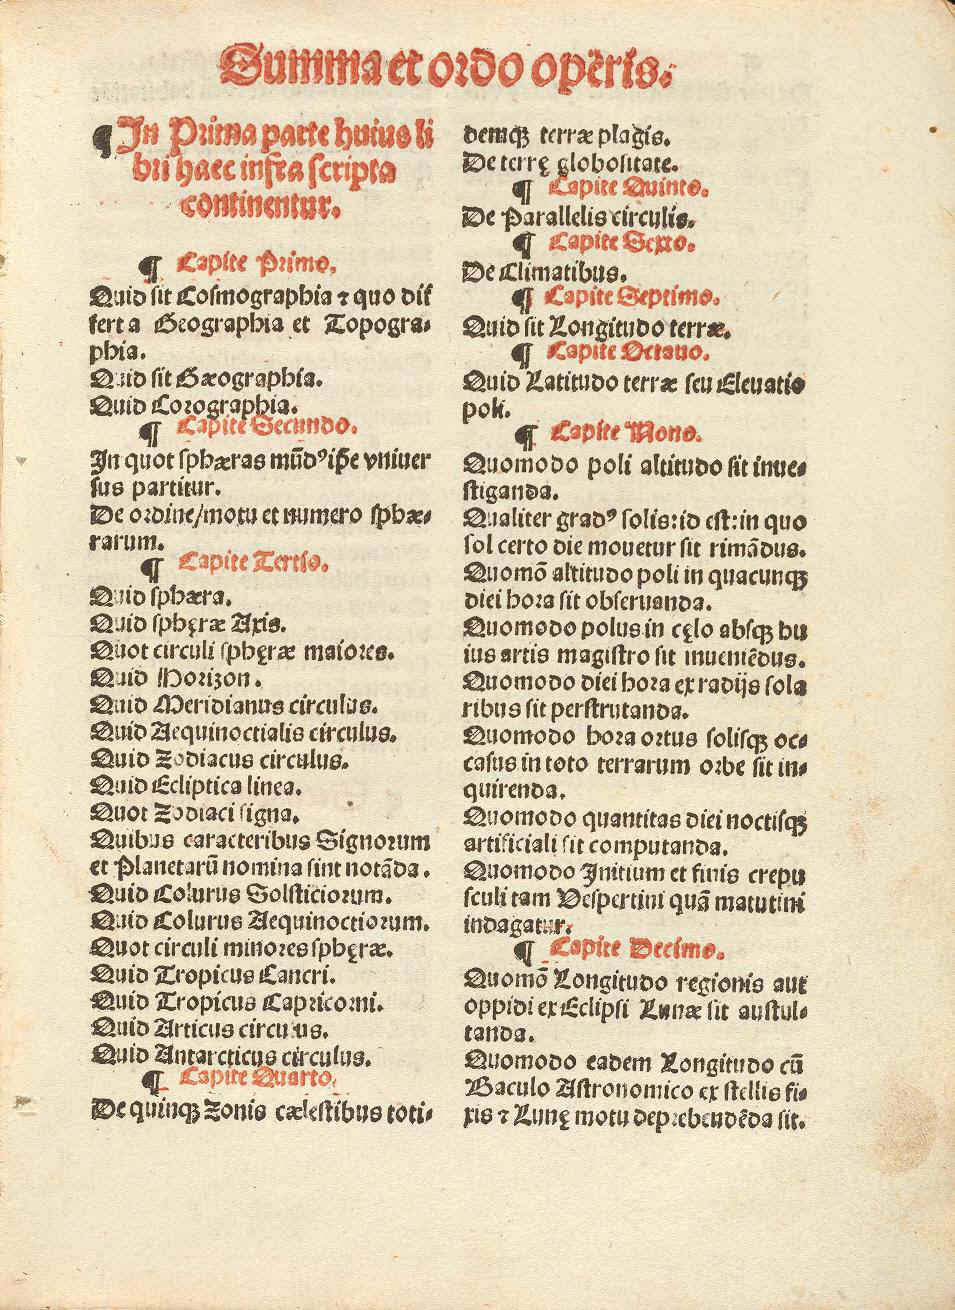 Summa et ordo opēris.
¶ In Prima parte huius li
bri haec infra scripta
continentur.
¶ Capite Primo.
Quid sit Cosmographia ⁊ quo dif
fert a Geographia et Topogra⸗
phia.
Quid sit Gæographia.
Quid Corographia.
¶ Capite Secundo.
In quot sphæras mūdꝰ ip̄e vniuer
sus partitur.
De ordine/motu et numero sphæ⸗
rarum.
¶ Capite Tertio.
Quid sphæra.
Quid sphęræ Axis.
Quot circuli sphęræ maiores.
Quid Horizon.
Quid Meridianus circulus.
Quid Aequinoctialis circulus.
Quid Zodiacus circulus.
Quid Ecliptica linea.
Quot Zodiaci signa.
Quibus caracteribus Signorum
et Planetarū nomina sint notāda.
Quid Colurus Solsticiorum.
Quid Colurus Aequinoctiorum.
Quot circuli minores sphęræ.
Quid Tropicus Cancri.
Quid Tropicus Capricorni.
Quid Articus circulus.
Quid Antarcticus circulus.
¶ Capite Quarto.
De quinqꝫ Zonis cælestibus toti⸗
demqꝫ terræ plagis.
De terrę globositate.
¶ Capite Quinto.
De Parallelis circulis.
¶ Capite Sexto.
De Climatibus.
¶ Capite Septimo.
Quid sit Longitudo terræ.
¶ Capite Octauo.
Quid Latitudo terræ seu Eleuatio
poli.
¶ Capite Nono.
Quomodo poli altitudo sit inue⸗
stiganda.
Qualiter gradꝰ solis: id est: in quo
sol certo die mouetur sit rimādus.
Quomō altitudo poli in quacunqꝫ
diei hora sit obseruanda.
Quomodo polus in cęlo absqꝫ hu
ius artis magistro sit inueniēdus.
Quomodo diei hora ex radijs sola
ribus sit perstrutanda.
Quomodo hora ortus solisqꝫ oc⸗
casus in toto terrarum orbe sit in⸗
quirenda.
Quomodo quantitas diei noctisqꝫ
artificiali sit computanda.
Quomodo Initium et finis crepu
sculi tam Vespertini quā matutini
indagatur.
¶ Capite Decimo.
Quomō Longitudo regionis aut
oppidi ex Eclipsi Lunæ sit auscul⸗
tanda.
Quomodo eadem Longitudo cū
Baculo Astronomico ex stellis fi⸗
xis ⁊ Lunę motu deprehendēda sit.